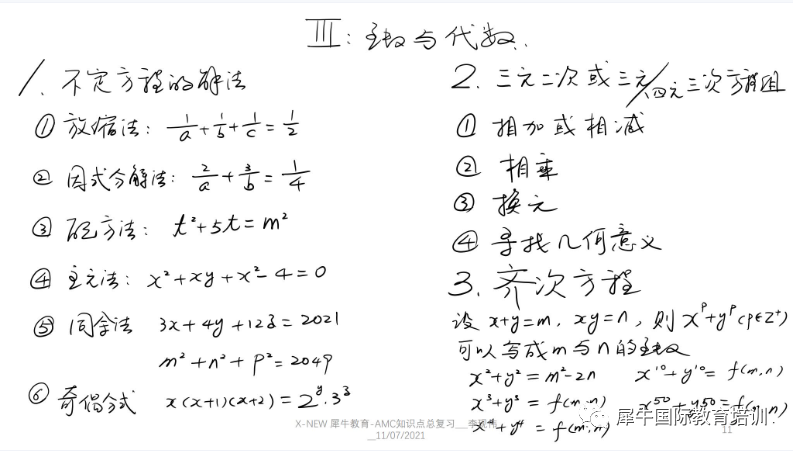 III: 整数与代数.
1. 不定方程的解法
① 放缩法: 1/a + 1/b + 1/c = 1/2
② 因式分解法: 2/a + 3/b = 1/4
③ 配方法: t²+5t=m²
④ 主元法: x²+xy+x²-4=0
⑤ 同余法 3x+4y+12z=2021
m²+n²+p²=2049
⑥ 奇偶分式 x(x+1)(x+2)=2^y·3^z
2. 三元二次或三元/四元三次方程组
① 相加或相减
② 相乘
③ 换元
④ 寻找几何意义
3. 齐次方程
设 x+y=m, xy=n, 则 x^p+y^p (p∈Z⁺)
可以写成m与n的整数
x²+y²=m²-2n x¹⁰+y¹⁰=f(m,n)
x³+y³=f(m,n) x⁵⁰+y⁵⁰=f(m,n)
x⁴+y⁴=f(m,n)
犀牛国际教育培训
X-NEW 犀牛教育-AMC知识点总复习__李
__11/07/2021
11